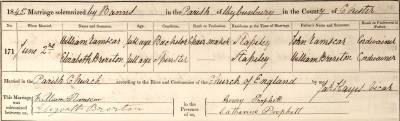 1845 Marriage solemnized by Banns in the Parish of Wybunbury in the County of Chester
No. When Married. Name and Surname. Age. Condition. Rank or Profession. Residence at the Time of Marriage. Father's Name and Surname. Rank or Profession of Father.
171 June 2nd William full age Bachelor Stapeley John Cordwainer
Elizabeth Brereton full age Spinster Stapeley William Brereton Cordwainer
Married in the Parish Church according to the Rites and Ceremonies of the Church of England by Vicar
This Marriage was solemnized between us, William
Elizabeth Brereton
in the Presence of us, Henry Prophett
Catharine Prophett